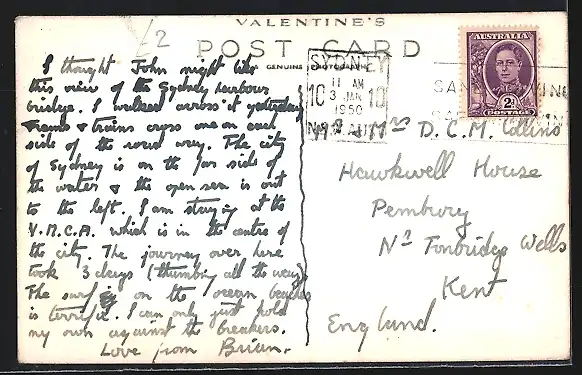 £2
VALENTINE'S
POST CARD
GENUINE PHOTOGRAPH
I thought John might like
this view of the Sydney harbour
bridge. I walked across it yesterday
trams & trains cross one on each
side of the road way. The city
of Sydney is on the far side of
the water & the open sea is out
to the left. I am staying at the
Y.M.C.A. which is in the centre of
the city. The journey over here
took 3 days (thumbing all the way).
The surf on the ocean beaches
is terrific. I can only just hold
my own against the breakers.
Love from Brian.
SYDNEY
11 AM
10 3 JAN 10
1950
N.S.W. AUST
AUSTRALIA
2D
POSTAGE
Mr & Mrs D.C.M. Collins
Hawkwell House
Pembury
Nr Tonbridge Wells
Kent
England.